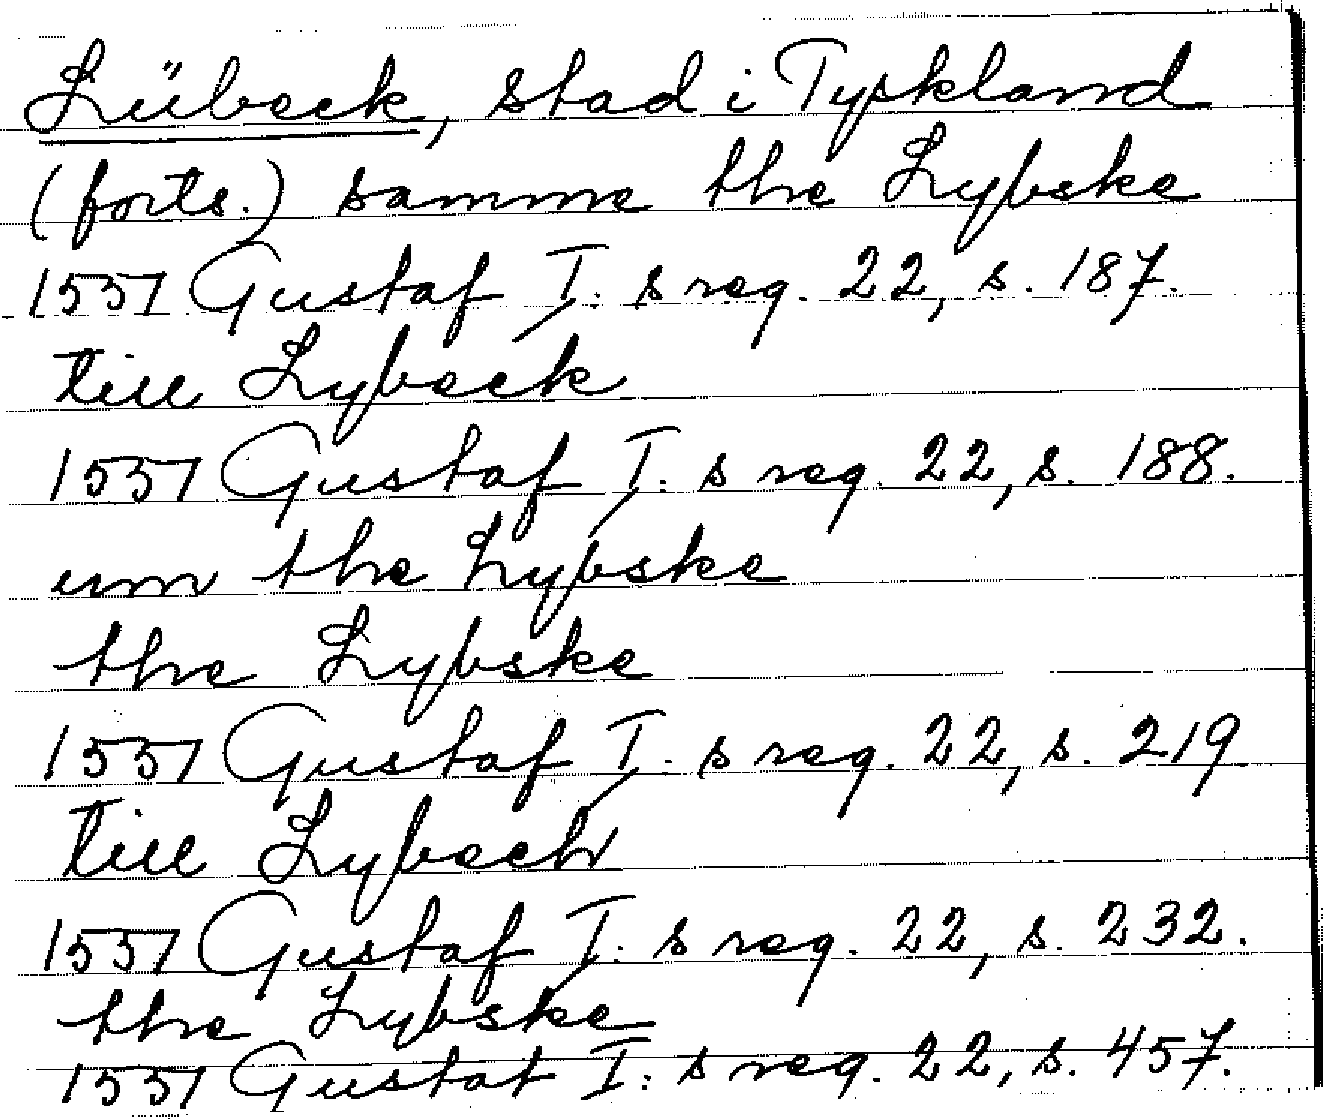 Lübeck, stad i Tyskland
(forts.) samme the Lybske
1551 Gustaf I:s reg. 22, s. 187.
till Lybeck
1551 Gustaf I:s reg. 22, s. 188.
um the Lybske
the Lybske
1551 Gustaf I:s reg. 22, s. 219
till Lybeck
1551 Gustaf I:s reg. 22, s. 232.
the Lybske
1551 Gustaf I:s reg. 22, s. 457.